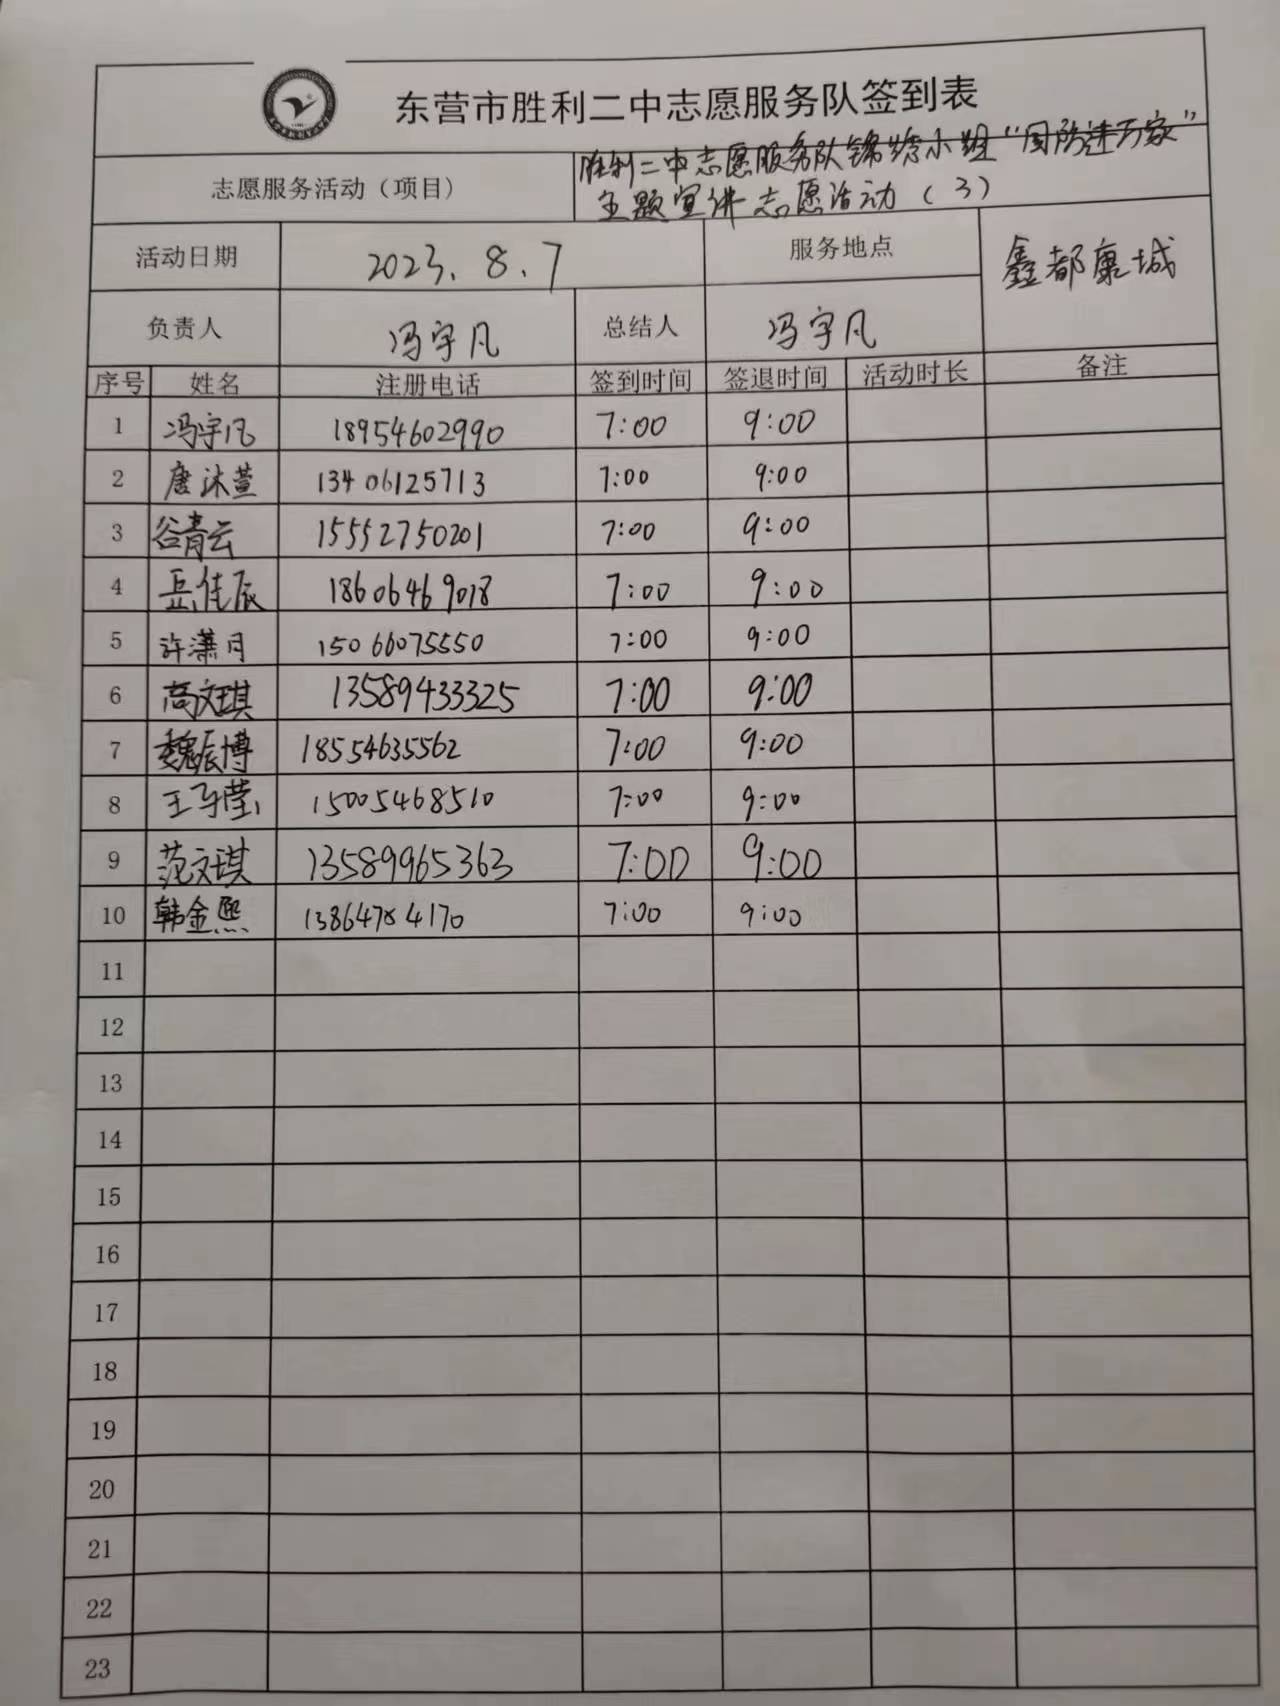 东营市胜利二中志愿服务队签到表
志愿服务活动（项目） 胜利二中志愿服务队锦小组“国防进万家”
主题宣讲志愿活动（3）
活动日期 2023.8.7 服务地点 鑫都康城
负责人 冯宇凡 总结人 冯宇凡
序号 姓名 注册电话 签到时间 签退时间 活动时长 备注
1 冯宇凡 18954602990 7:00 9:00
2 唐沐萱 13406125713 7:00 9:00
3 谷青云 15552750201 7:00 9:00
4 岳佳辰 18606469018 7:00 9:00
5 许潇月 15066075550 7:00 9:00
6 高文琪 13589433325 7:00 9:00
7 魏辰博 18554635562 7:00 9:00
8 王莹 15005468510 7:00 9:00
9 范文琪 13589965363 7:00 9:00
10 韩金熙 13864784170 7:00 9:00
11
12
13
14
15
16
17
18
19
20
21
22
23